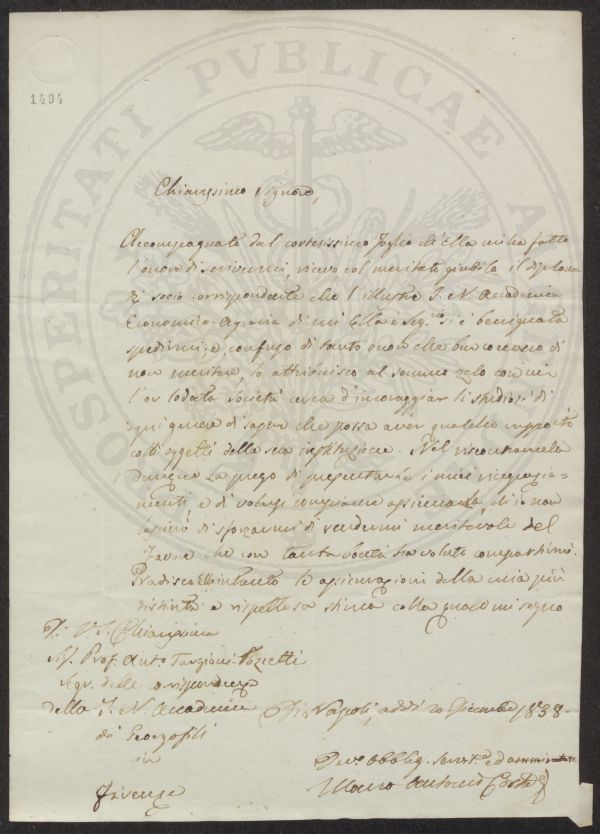 PROSPERITATI PVBLICAE AVGENDAE
1494
Chiarissimo Signore,
Accompagnato dal cortesissimo foglio ch'Ella mi ha fatto
l'onor di scrivermi, ricevo col meritato giubilo il diploma
di socio corrispondente che l'illustre I. R. Accademia
Economico-Agraria di cui Ella è Seg.rio si è benignata
spedirmi; e confuso di tanto onore che ben conosco di
non meritare, lo attribuisco al sommo zelo con cui
l'or lodata Società cerca d'incoraggiar li studiosi di
ogni genere di sapere che possa aver qualche rapporto
colli oggetti della sua instituzione. Nel riscontrarnela
dunque La prego di presentarle i miei ringrazia-
menti, e di volerla assicurare, ch'io non
lascierò di sforzarmi di rendermi meritevole del
favore che con tanta bontà ha voluto compartirmi.
Gradisca Ella intanto le assicurazioni della mia più
distinta e rispettosa stima colla quale mi segno
Di V. S. Chiarissima
Sig. Prof. Anto Targioni-Tozzetti
Segr. delle corrispondenze
della I. R. Accademia
dei Georgofili
in
Firenze
Napoli, addì 20 Dicembre 1838.
Dev.o Obblig. Servit.e ed ammiratore
Antonio Costa